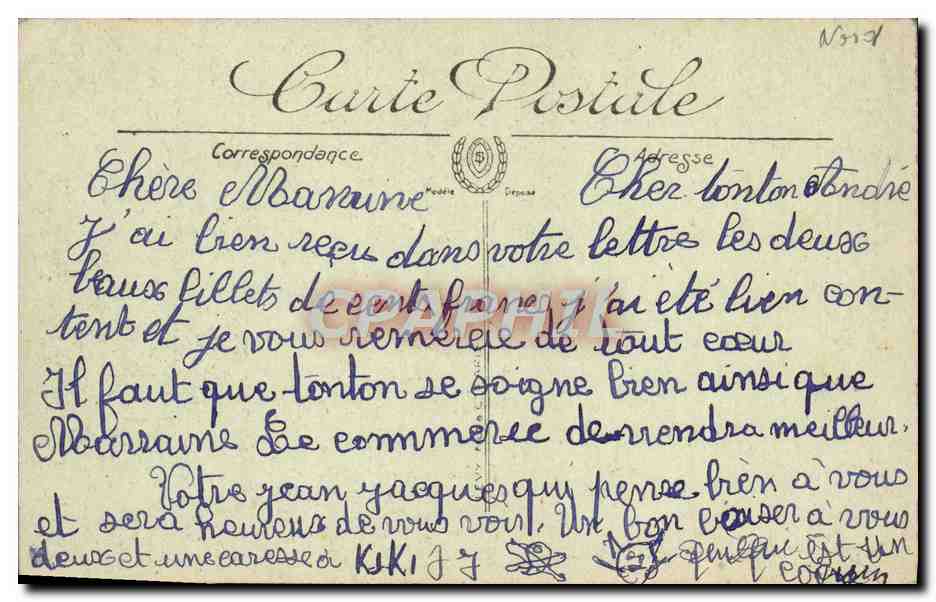 Nord
Carte Postale
Correspondance
Adresse
Modèle Déposé
Chère Marraine Cher tonton André
J'ai bien reçu dans votre lettre les deux
beaux billets de cents francs j'ai été bien con-
tent et je vous remercie de tout cœur
Il faut que tonton se soigne bien ainsi que
Marraine Le commerce deviendra meilleur.
Votre jean jacques qui pense bien à vous
et sera heureux de vous voir. Un bon baiser à vous
deux et une caresse à KiKi J J
est un
CPAPHIL